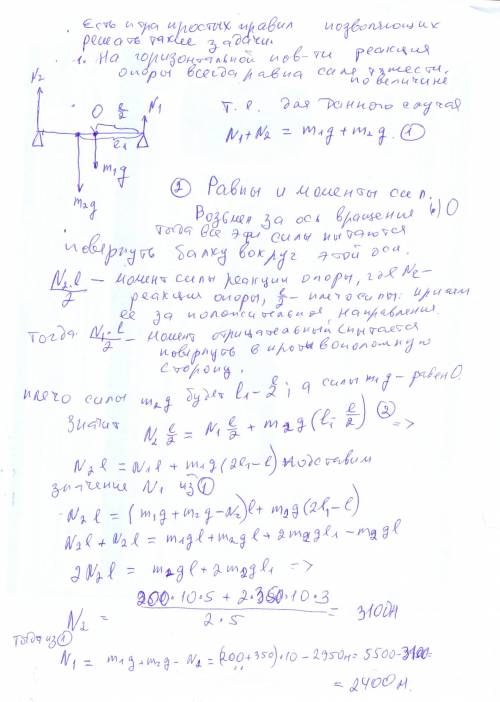 Есть и два простых правил позволяющих
решать такие задачи.
1. На горизонтальной пов-ти реакция
опоры всегда равна силе тяжести,
по величине
т.е. для данного случая
N₁+N₂ = m₁g+m₂g. ①
N₂
O
l/2
N₁
l₁
m₁g
m₂g
② Равны и моменты сил.
Возьмем за ось вращения О
тогда все эти силы пытаются
повернуть балку вокруг этой оси.
N₂·l/2 – момент силы реакции опоры, где N₂-
реакция опоры, l/2 – плечо силы. примем
ее за положительное направления.
Тогда N₁·l/2 – момент отрицательный пытается
повернуть в противоположную
сторону.
плечо силы m₂g будет l₁ - l/2; а силы m₁g – равен 0.
Значит N₂ l/2 = N₁ l/2 + m₂g (l₁ - l/2) ② =>
N₂l = N₁l + m₁g(2l₁-l) подставим
значение N₁ из ①
N₂l = (m₁g+m₂g-N₂)l + m₂g(2l₁-l)
N₂l+N₂l = m₁gl+m₂gl+2m₂gl₁-m₂gl
2N₂l = m₂gl+2m₂gl₁ =>
N₂ = (200·10·5 + 2·350·10·3) / (2·5) = 3100н
Тогда из ①
N₁ = m₁g+m₂g-N₂ = (200+350)·10-2950н = 5500-3100=
= 2400н.